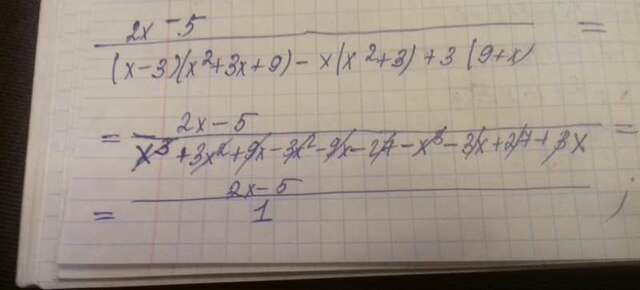 2x - 5
(x-3)(x²+3x+9) - x(x²+3) + 3(9+x) =
= 2x - 5
x³+3x²+9x-3x²-9x-27-x³-3x+27+3x =
= 2x-5
1 ;